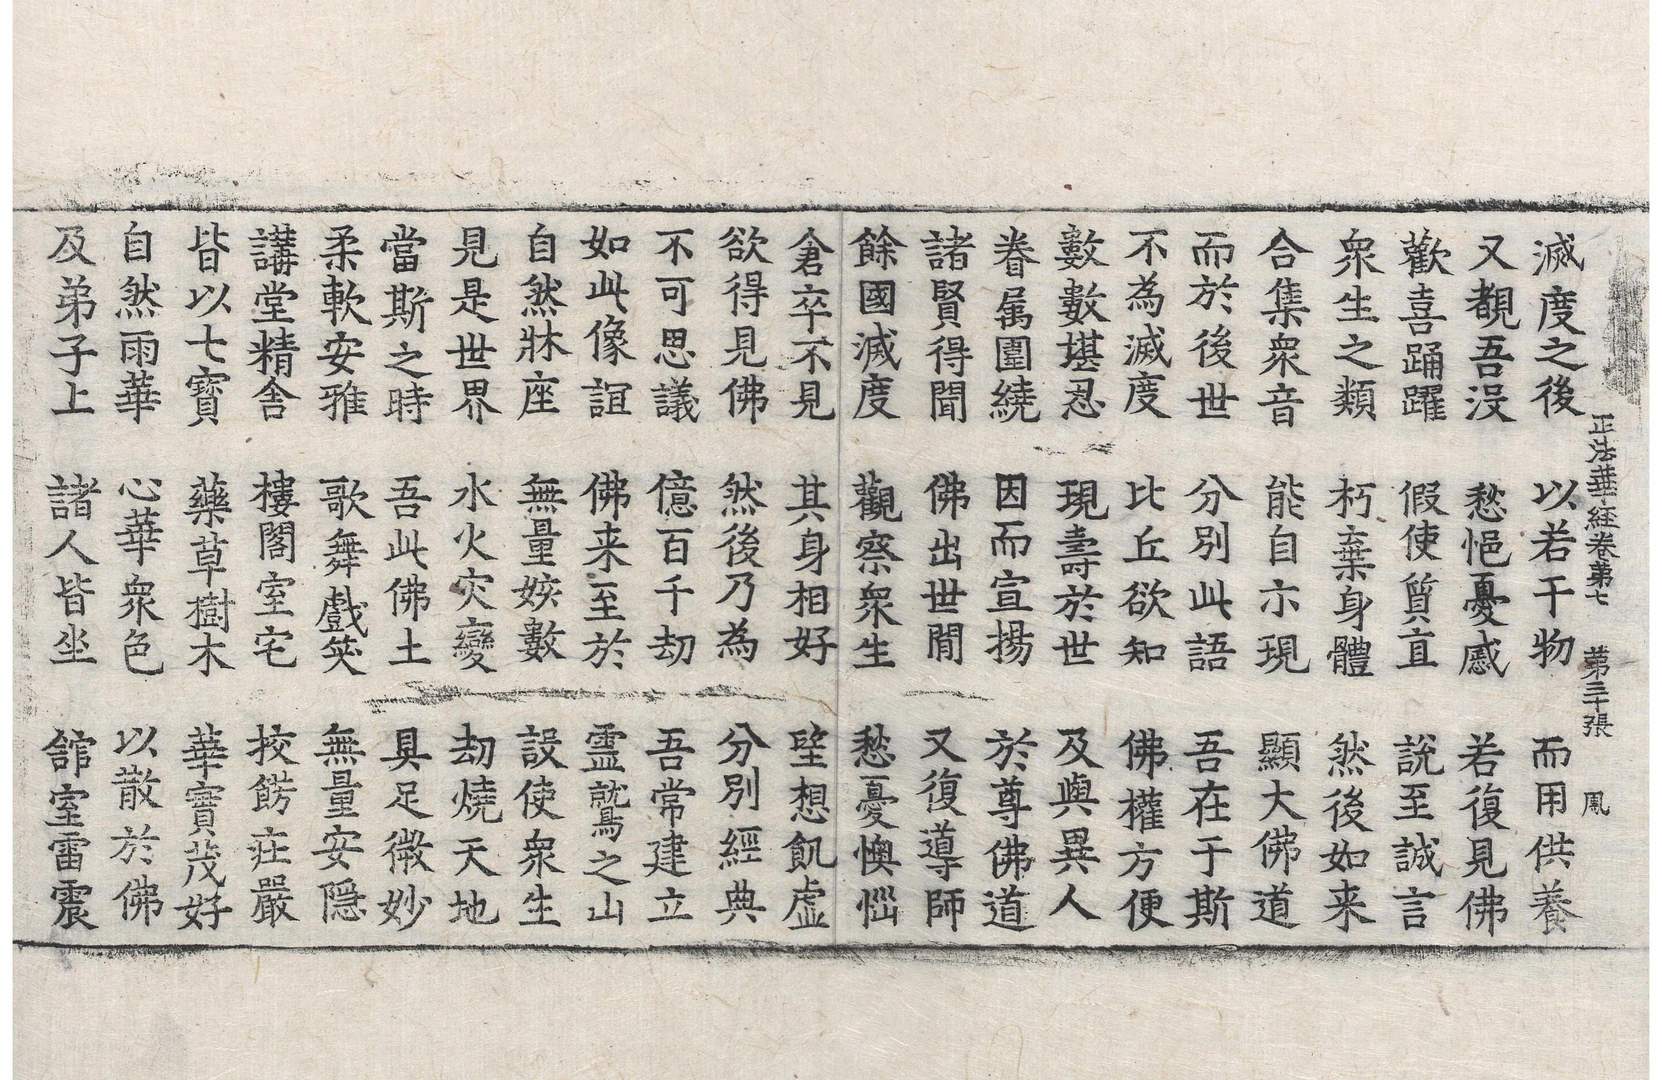 正法華經卷第七 第三十張 鳳
滅度之後 以若干物 而用供養
又覩吾沒 愁悒憂慼 若復見佛
歡喜踊躍 假使質直 說至誠言
衆生之類 朽棄身體 然後如来
合集衆音 能自示現 顯大佛道
而於後世 分別此語 吾在于斯
不為滅度 比丘欲知 佛權方便
數數堪忍 現壽於世 及與異人
眷属圍繞 因而宣揚 於尊佛道
諸賢得聞 佛出世間 又復導師
餘國滅度 觀察衆生 愁憂懊惱
倉卒不見 其身相好 朢想飢虛
欲得見佛 然後乃為 分別經典
不可思議 億百千劫 吾常建立
如此像誼 佛来至於 靈鷲之山
自然牀座 無量姟數 設使衆生
見是世界 水火灾變 劫燒天地
當斯之時 吾此佛土 具足微妙
柔軟安雅 歌舞戲笑 無量安隱
講堂精舍 樓閣室宅 挍餝莊嚴
皆以七寶 藥草樹木 華實茂好
自然雨華 心華衆色 以散於佛
及弟子上 諸人皆坐 舘室雷震